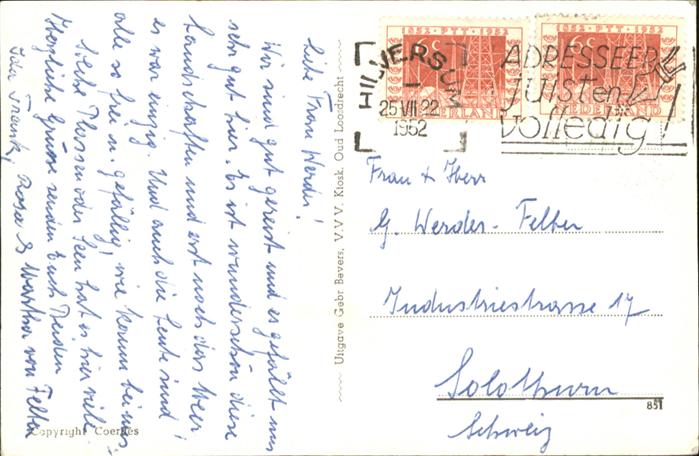 Liebe Frau Werder!
Wir sind gut gereist und es gefällt uns
sehr gut hier. Es ist wunderschön diese
Landschaften und erst noch das Meer
es war einzig. Und auch die Leute sind
alle so frei u. gefällig, wie kaum bei uns!
Solche Flossen oder Seen hat es hier viele.
Herzliche Grüsse senden Euch Beiden
Frank, Rosa & Martha von Felten
Copyright Coerdes
Uitgave Gebr Bevers, V.V.V. Kiosk, Oud Loosdrecht
1852 PTT 1952
NEDERLAND
1852 PTT 1952
NEDERLAND
HILVERSUM
25 VII 22
1952
ADRESSEER
JUIST en
volledig!
Frau & Herr
G. Werder-Felber
Industriestrasse 17
Solothurn
Schweiz
851